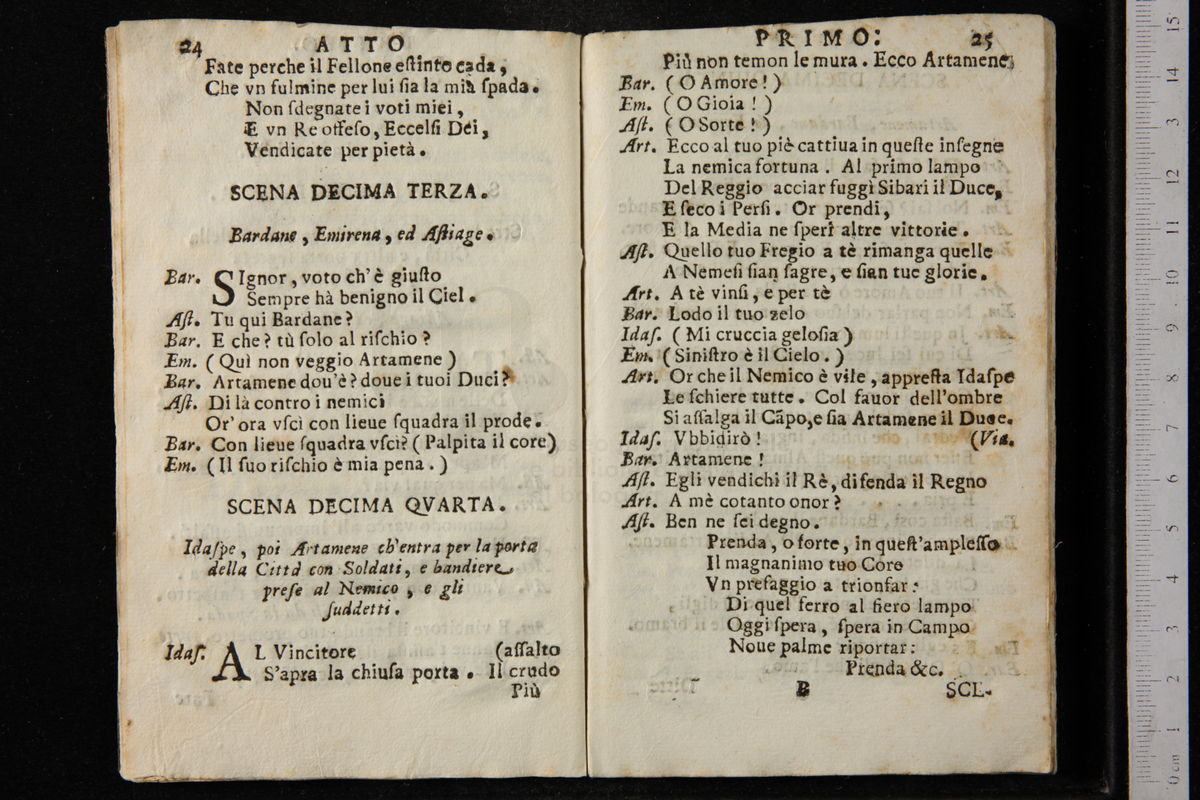 24 ATTO
Fate perche il Fellone eſtinto cada,
Che vn fulmine per lui ſia la mia ſpada.
Non ſdegnate i voti miei,
E vn Re offeſo, Eccelſi Dei,
Vendicate per pietà.
SCENA DECIMA TERZA.
Bardane, Emirena, ed Aſtiage.
Bar. SIgnor, voto ch'è giuſto
Sempre hà benigno il Ciel.
Aſt. Tu qui Bardane?
Bar. E che? tù ſolo al riſchio?
Em. (Quì non veggio Artamene)
Bar. Artamene dou'è? doue i tuoi Duci?
Aſt. Di là contro i nemici
Or' ora vſcì con lieue ſquadra il prode.
Bar. Con lieue ſquadra vſcì? (Palpita il core)
Em. (Il ſuo riſchio è mia pena.)
SCENA DECIMA QVARTA.
Idaſpe, poi Artamene ch'entra per la porta
della Città con Soldati, e bandiere
preſe al Nemico, e gli
ſuddetti.
Idaſ. AL Vincitore (aſſalto
S'apra la chiuſa porta. Il crudo
Più
PRIMO: 25
Più non temon le mura. Ecco Artamene,
Bar. (O Amore!)
Em. (O Gioia!)
Aſt. (O Sorte!)
Art. Ecco al tuo piè cattiua in queſte inſegne
La nemica fortuna. Al primo lampo
Del Reggio acciar fuggì Sibari il Duce,
E ſeco i Perſi. Or prendi,
E la Media ne ſperi altre vittorie.
Aſt. Quello tuo Fregio a tè rimanga quelle
A Nemeſi ſian ſagre, e ſian tue glorie.
Art. A tè vinſi, e per tè
Bar. Lodo il tuo zelo
Idaſ. (Mi cruccia geloſia)
Em. (Siniſtro è il Cielo.)
Art. Or che il Nemico è vile, appreſta Idaſpe
Le ſchiere tutte. Col fauor dell'ombre
Si aſſalga il Cãpo, e ſia Artamene il Duce.
Idaſ. Vbbidirò! (Via.
Bar. Artamene!
Aſt. Egli vendichi il Rè, difenda il Regno
Art. A mè cotanto onor?
Aſt. Ben ne ſei degno.
Prenda, o forte, in queſt'ampleſſo
Il magnanimo tuo Core
Vn preſaggio a trionfar:
Di quel ferro al fiero lampo
Oggi ſpera, ſpera in Campo
Noue palme riportar:
Prenda &c.
B SCE-